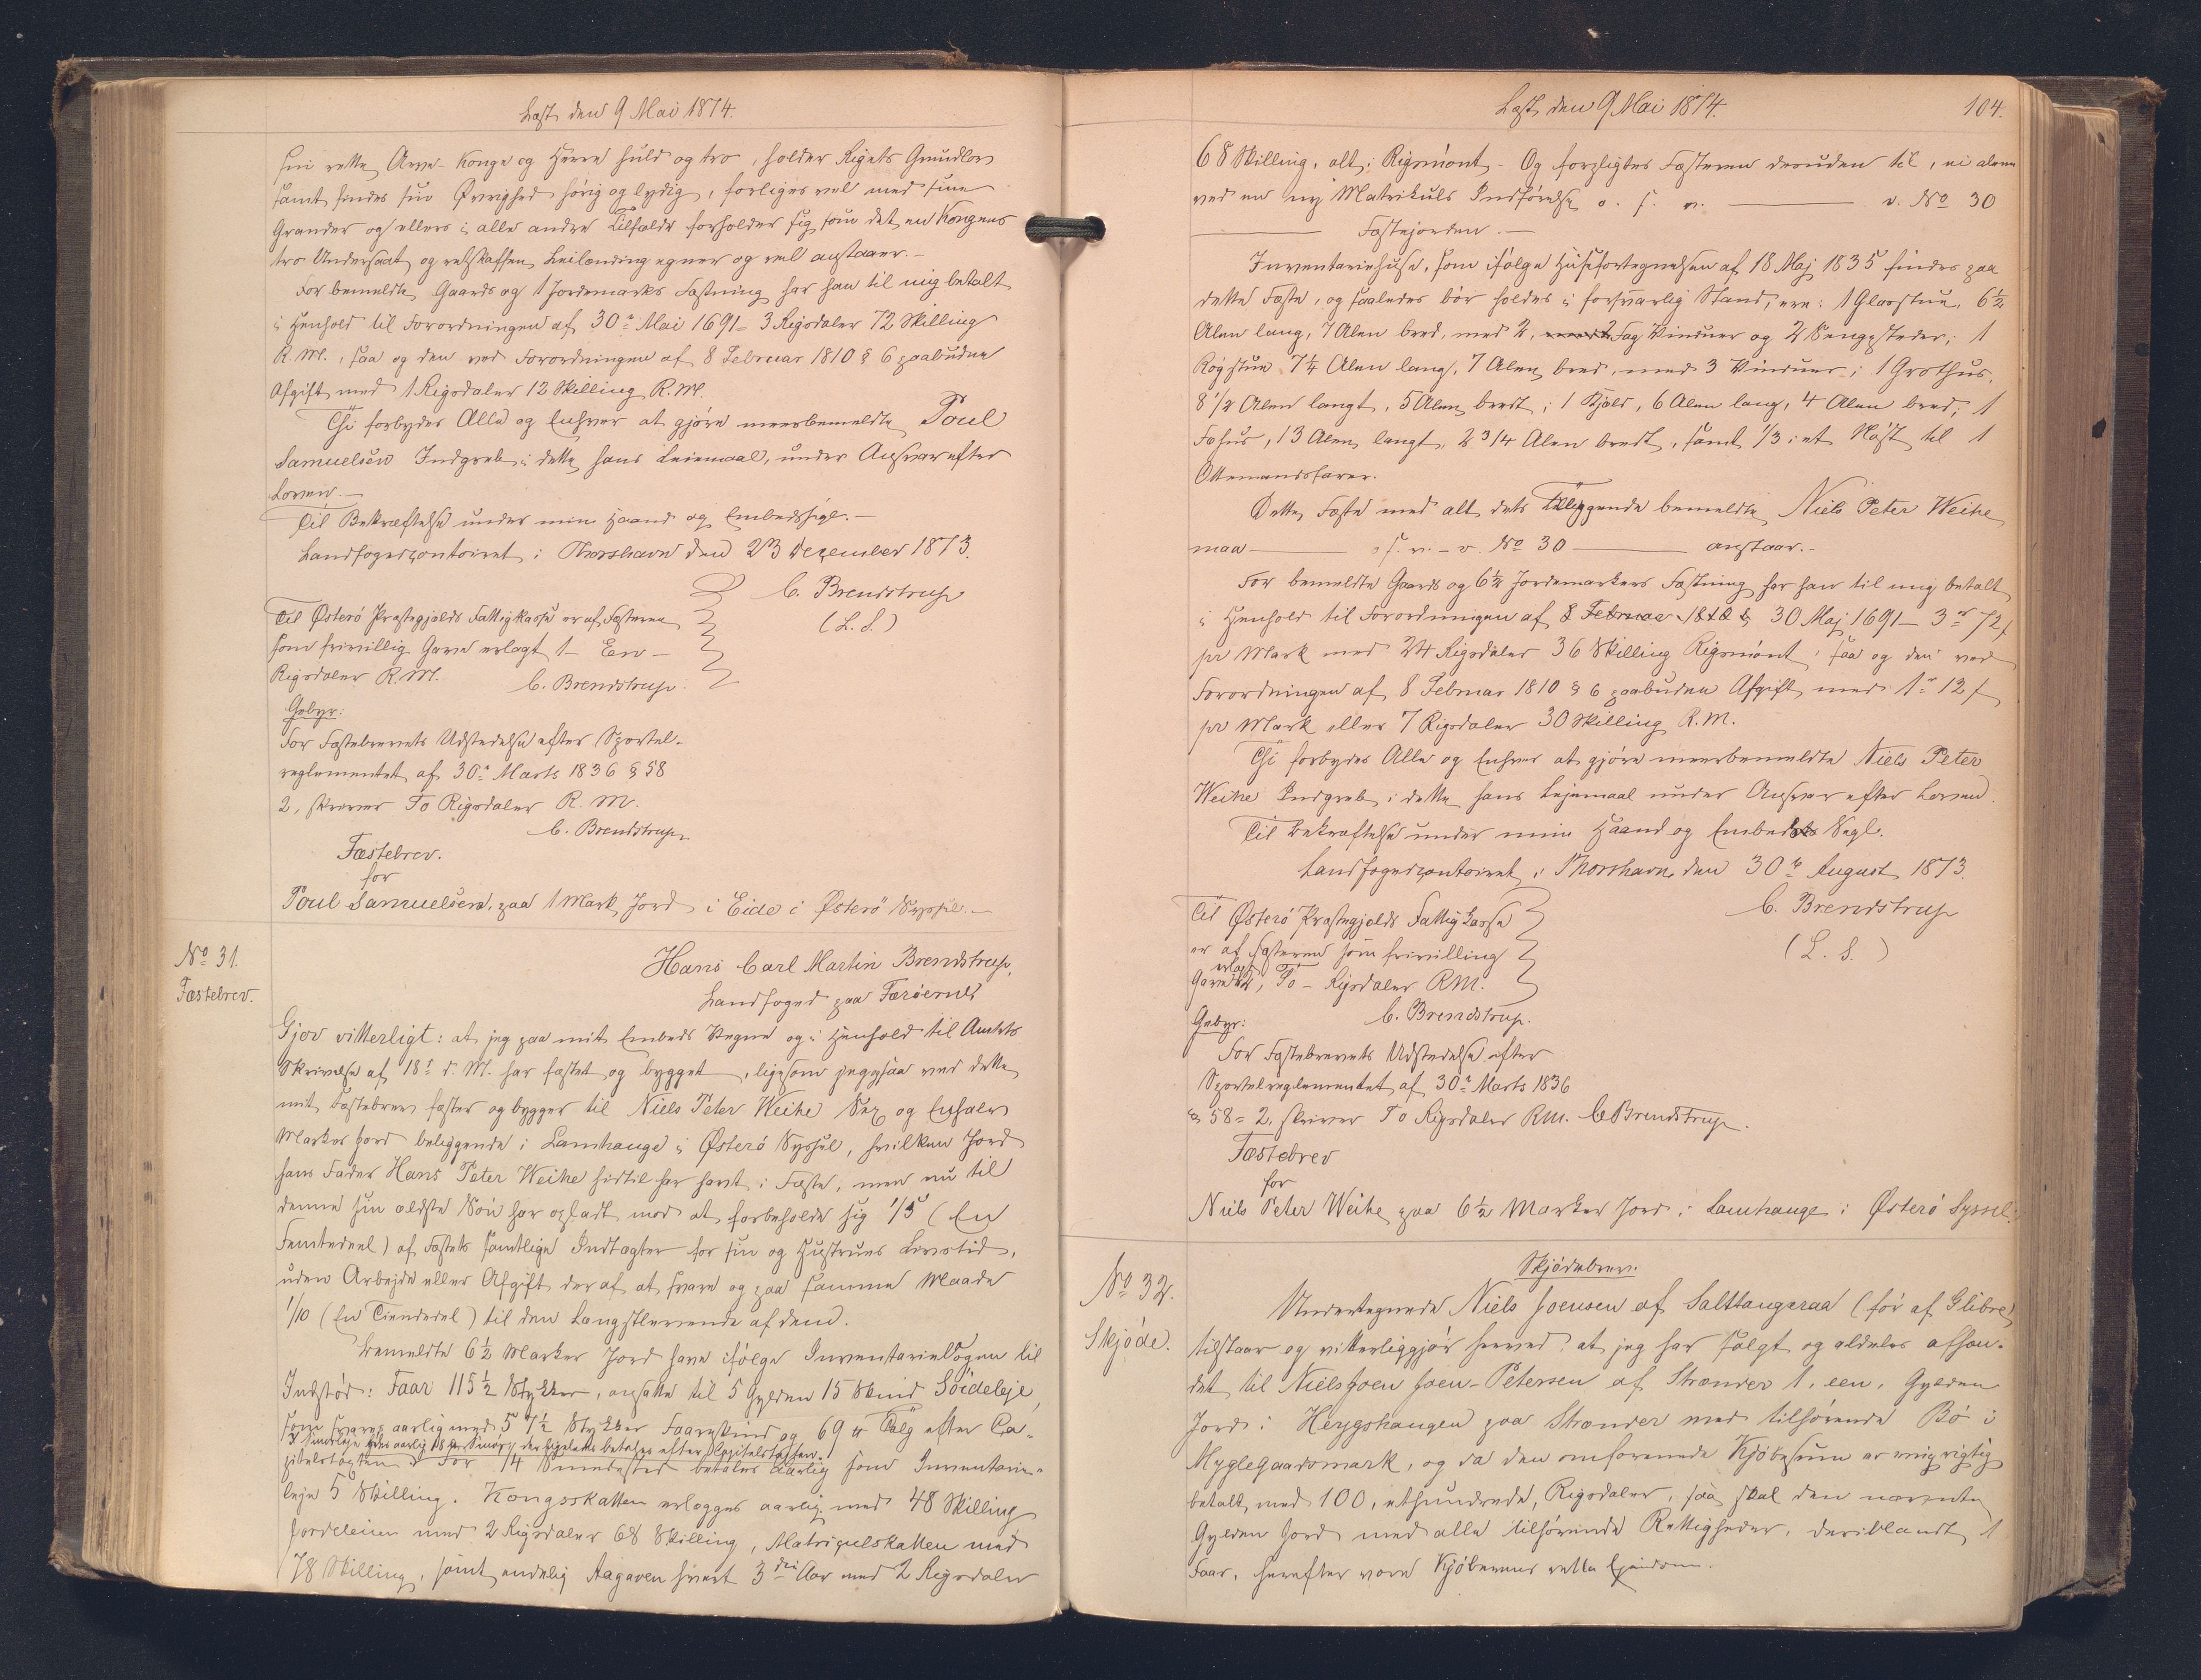 Læst den 9 Mai 1874.
sin rette Arve-Konge og Herre huld og tro, holder Rigets Grundlov
samt findes sin Øvrighed hörig og lydig, forliges vel med sine
Grander og ellers i alle andre Tilfælde forholder sig som det en Kongens
tro Undersaat og retskaffen Leilænding egner og vel anstaaer.-
For bemeldte Gaards og 1 Jordemarks Fæstning har han til mig betalt
i Henhold til Forordningen af 30te Mai 1691 - 3 Rigsdaler 72 Skilling
R. M., saa og den ved Forordningen af 8 Februar 1810 § 6 paabudne
Afgift med 1 Rigsdaler 12 Skilling R. M.
Thi forbydes Alle og Enhver at gjöre meerbemeldte Poul
Samuelsen Indgreb i dette hans Leiemaal, under Ansvar efter
Loven.-
Til Bekræftelse under min Haand og Embedssigl.-
Landfogedcontoiret i Thorshavn den 23 Dezember 1873.
C. Brendstrup
(L. S.)
Til Österö Præstegjelds Fattigkasse er af Fæsteren
som frivillig Gave erlagt 1 - Een -
Rigsdaler R. M.
C. Brendstrup.
Gebyr:
For Fæstebrevets Udstedelse efter Sportel-
reglementet af 30te Marts 1836 § 58
2, skriver To Rigsdaler R. M.
C. Brendstrup
Fæstebrev.
for
Poul Samuelsen, paa 1 Mark Jord i Eide i Österö Syssel.-
No 31.
Fæstebrev.
Hans Carl Martin Brendstrup,
Landfoged paa Færöerne
Gjör vitterligt: at jeg paa mit Embeds Vegne og i Henhold til Amtets
Skrivelse af 18de d. M. har fæstet og bygget, ligesom jeg ogsaa ved dette
mit Fæstebrev fæster og bygger til Niels Peter Weihe Sex og Enhalv
Marker Jord beliggende i Lamhauge i Österö Syssel, hvilken Jord
hans Fader Hans Peter Weihe hidtil har havt i Fæste, men nu til
denne sin ældste Sön har opladt mod at forbeholde sig 1/5 (En
Femtedeel) af Fæstets samtlige Indtægter for sin og Hustrues Levetid,
uden Arbejde eller Afgift deraf at svare og paa samme Maade
1/10 (En Tiendedel) til den Længstlevende af dem.
Bemeldte 6½ Marker Jord have ifölge Inventarieloven til
Indstöd: Faar 115½ Stykker, ansatte til 5 Gylden 15 Skind Söideleje,
som svares aarlig med 57½ Stykker Faareskind og 69 ℔ Talg efter Ca-
pitelstaxten. For 14 betales aarlig som Inventarie-
leje 5 Skilling. Kongsskatten erlægges aarlig med 48 Skilling
Jordeleien med 2 Rigsdaler 68 Skilling, Matriculskatten med
78 Skilling, samt endelig Aagaven hvert 3die Aar med 2 Rigsdaler
Læst den 9 Mai 1874.
104.
68 Skilling, alt i Rigsmönt. Og forpligtes Fæsteren desuden til, ei alene
ved en ny Matrikuls Indförelse o. s. v. ——— v. No 30
——— Fæstejorden.-
Inventariehuse, som ifölge Huusfortegnelsen af 18 Maj 1835 findes paa
dette Fæste, og saaledes bör holdes i forsvarlig Stand, ere: 1 Glasstue, 6½
Alen lang, 7 Alen bred, med 2, Fag Vinduer og 2 Sengesteder; 1
Rögstue 7¼ Alen lang, 7 Alen bred, med 3 Vinduer; 1 Grothus,
8 1/2 Alen langt, 5 Alen bredt; 1 Hjald, 6 Alen lang, 4 Alen bred; 1
Fæhus, 13 Alen langt, 2 3/4 Alen bredt, samt 1/3 i et Nöst til 1
Ottemandsfarer.
Dette Fæste med alt dets Tilliggende bemeldte Niels Peter Weihe
maa ——— s. v. - v. No 30 ——— anstaar.-
For bemeldte Gaards og 6½ Jordemarkers Fæstning har han til mig betalt
i Henhold til Forordningen af 8 Februar 1810 § 30 Maj 1691 - 3 rd 72 s
pr Mark med 24 Rigsdaler 36 Skilling Rigsmönt, saa og den ved
Forordningen af 8 Februar 1810 § 6 paabudne Afgift med 1 rd 12 s
pr Mark eller 7 Rigsdaler 30 Skilling R. M.
Thi forbydes Alle og Enhver at gjöre meerbemeldte Niels Peter
Weihe Indgreb i dette hans Lejemaal under Ansvar efter Loven.
Til Bekræftelse under min Haand og Embeds Segl.
Landfogedcontoiret i Thorshavn den 30te August 1873.
C. Brendstrup
(L. S.)
Til Österö Præstegjelds Fattigkasse
er af Fæsteren som frivilling
Gave erlagt, To - Rigsdaler RM.
C. Brendstrup.
Gebyr:
For Fæstebrevets Udstedelse efter
Sportelreglementet af 30te Marts 1836
§ 58 - 2, skriver To Rigsdaler RM. C Brendstrup.
Fæstebrev
for
Niels Peter Weihe paa 6½ Marker Jord i Lamhauge i Österö Syssel.
No 32.
Skjöde.
Skjödebrev.
Undertegnede Niels Joensen af Salttangeraa (för af Glibre)
tilstaar og vitterliggjör herved: at jeg har solgt og aldeles afhæn-
det til Niels Joen Joen-Petersen af Strænder 1, een, Gylden
Jord i Heygshaugen paa Strænder med tilhörende Bö i
Myglegaardsmark, og da den omforenede Kjöbesum er mig rigtig
betalt med 100, ethundrede, Rigsdaler, saa skal den nævnte
Gylden Jord med alle tilhörende Rettigheder, deriblandt 1
Faar, herefter være Kjöberens rette Ejendom.